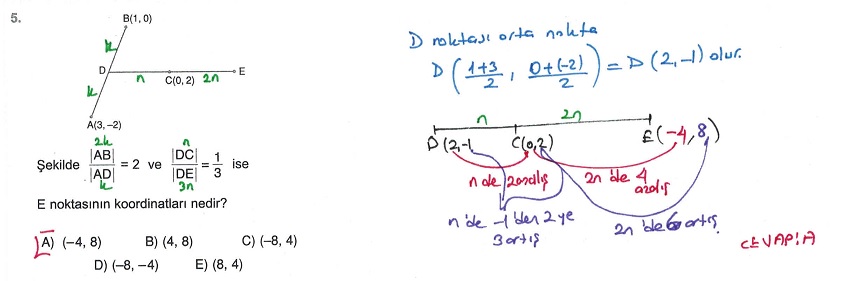 5.
B(1, 0)
k
D
n
C(0, 2)
2n
E
k
A(3, –2)
2k n
Şekilde |AB| / |AD| = 2 ve |DC| / |DE| = 1/3 ise
k 3n
E noktasının koordinatları nedir?
A) (–4, 8) B) (4, 8) C) (–8, 4)
D) (–8, –4) E) (8, 4)
D noktası orta nokta
D (1+3/2, 0+(-2)/2) = D (2,-1) olur.
n 2n
D (2,-1 C(0,2) E(-4,8)
n de 2 azalış 2n 'de 4 azalış
n 'de -1 'den 2 ye 3 artış
2n 'de 6 artış
CEVAP: A